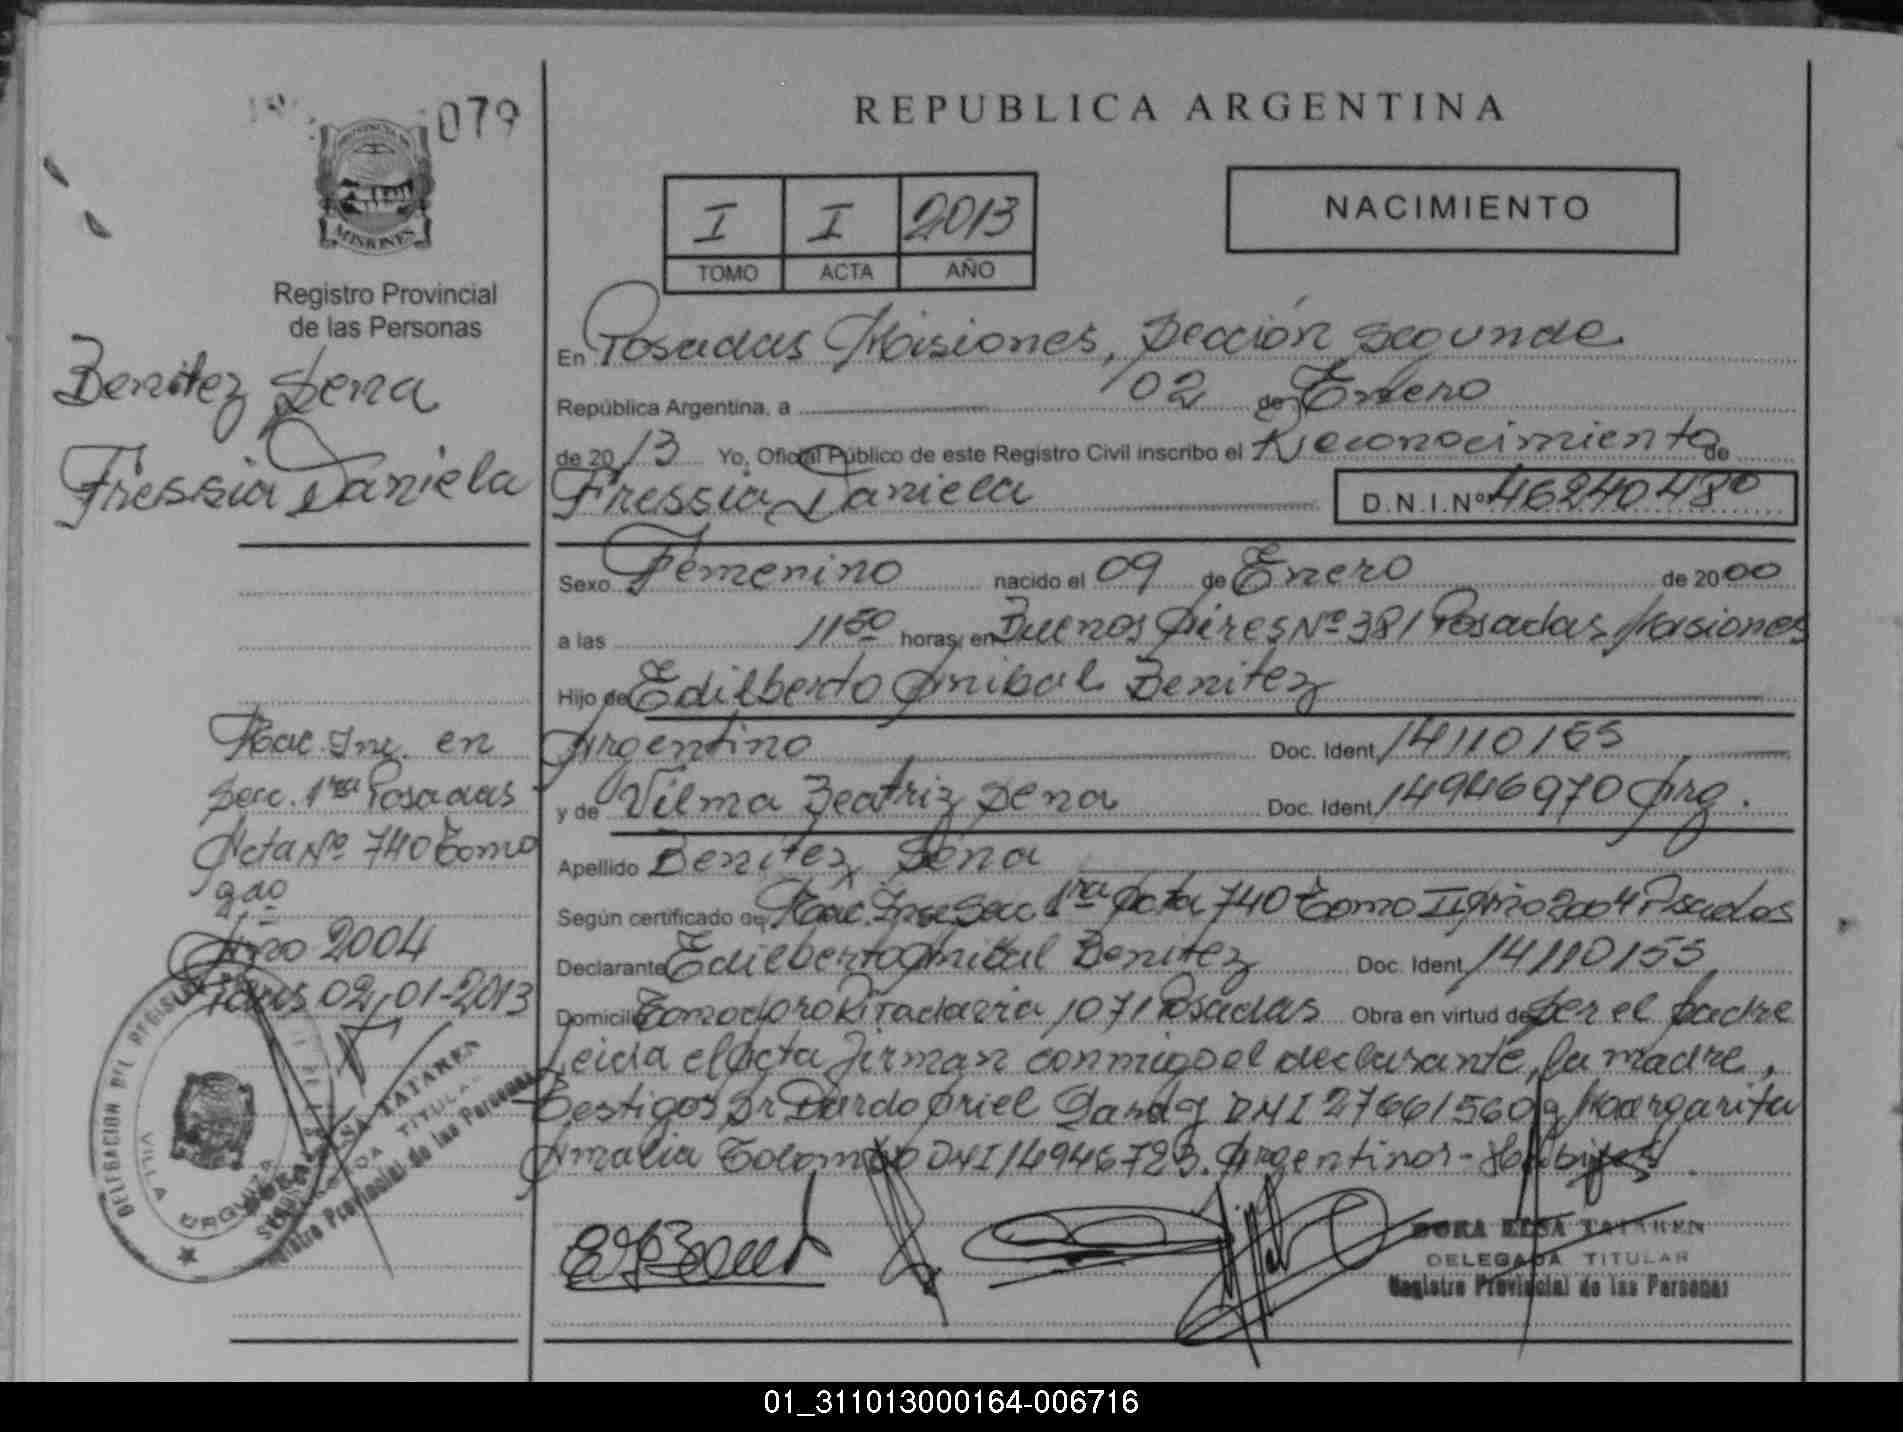 079
PROVINCIA DE
MISIONES
Registro Provincial
de las Personas
Benitez Sena
Fressia Daniela
Nac. Insc. en
Secc. 1ra Posadas
Acta Nº 740 Tomo
2do
Año 2004
02-01-2013
DELEGACION DEL REGISTRO
VILLA URQUIZA
DORA ELSA TATAREN
DELEGADA TITULAR
Registro Provincial de las Personas
REPUBLICA ARGENTINA
I I 2013
TOMO ACTA AÑO
NACIMIENTO
En Posadas Misiones, Sección Segunda
República Argentina, a 02 de Enero
de 2013 Yo, Oficial Público de este Registro Civil inscribo el Reconocimiento de
Fressia Daniela D.N.I.Nº 46240480
Sexo Femenino nacido el 09 de Enero de 2000
a las 11 50 horas, en Buenos Aires Nº 381 Posadas Misiones
Hijo de Edilberto Anibal Benitez
Argentino Doc. Ident. 14110155
y de Vilma Beatriz Sena Doc. Ident. 14946970 Arg.
Apellido Benitez Sena
Según certificado de Nac. Insc Secc 1ra Acta 740 Tomo II Año 2004 Posadas
Declarante Edilberto Anibal Benitez Doc. Ident. 14110155
Domicilio Comodoro Rivadavia 1071 Posadas Obra en virtud de ser el padre
Leida el Acta firman conmigo el declarante, la madre,
Testigos Sr Dardo Ariel DNI 27661560 y Margarita
Amalia Colombo DNI 14946723. Argentinos - Habiles
DORA ELSA TATAREN
DELEGADA TITULAR
Registro Provincial de las Personas
01_311013000164-006716